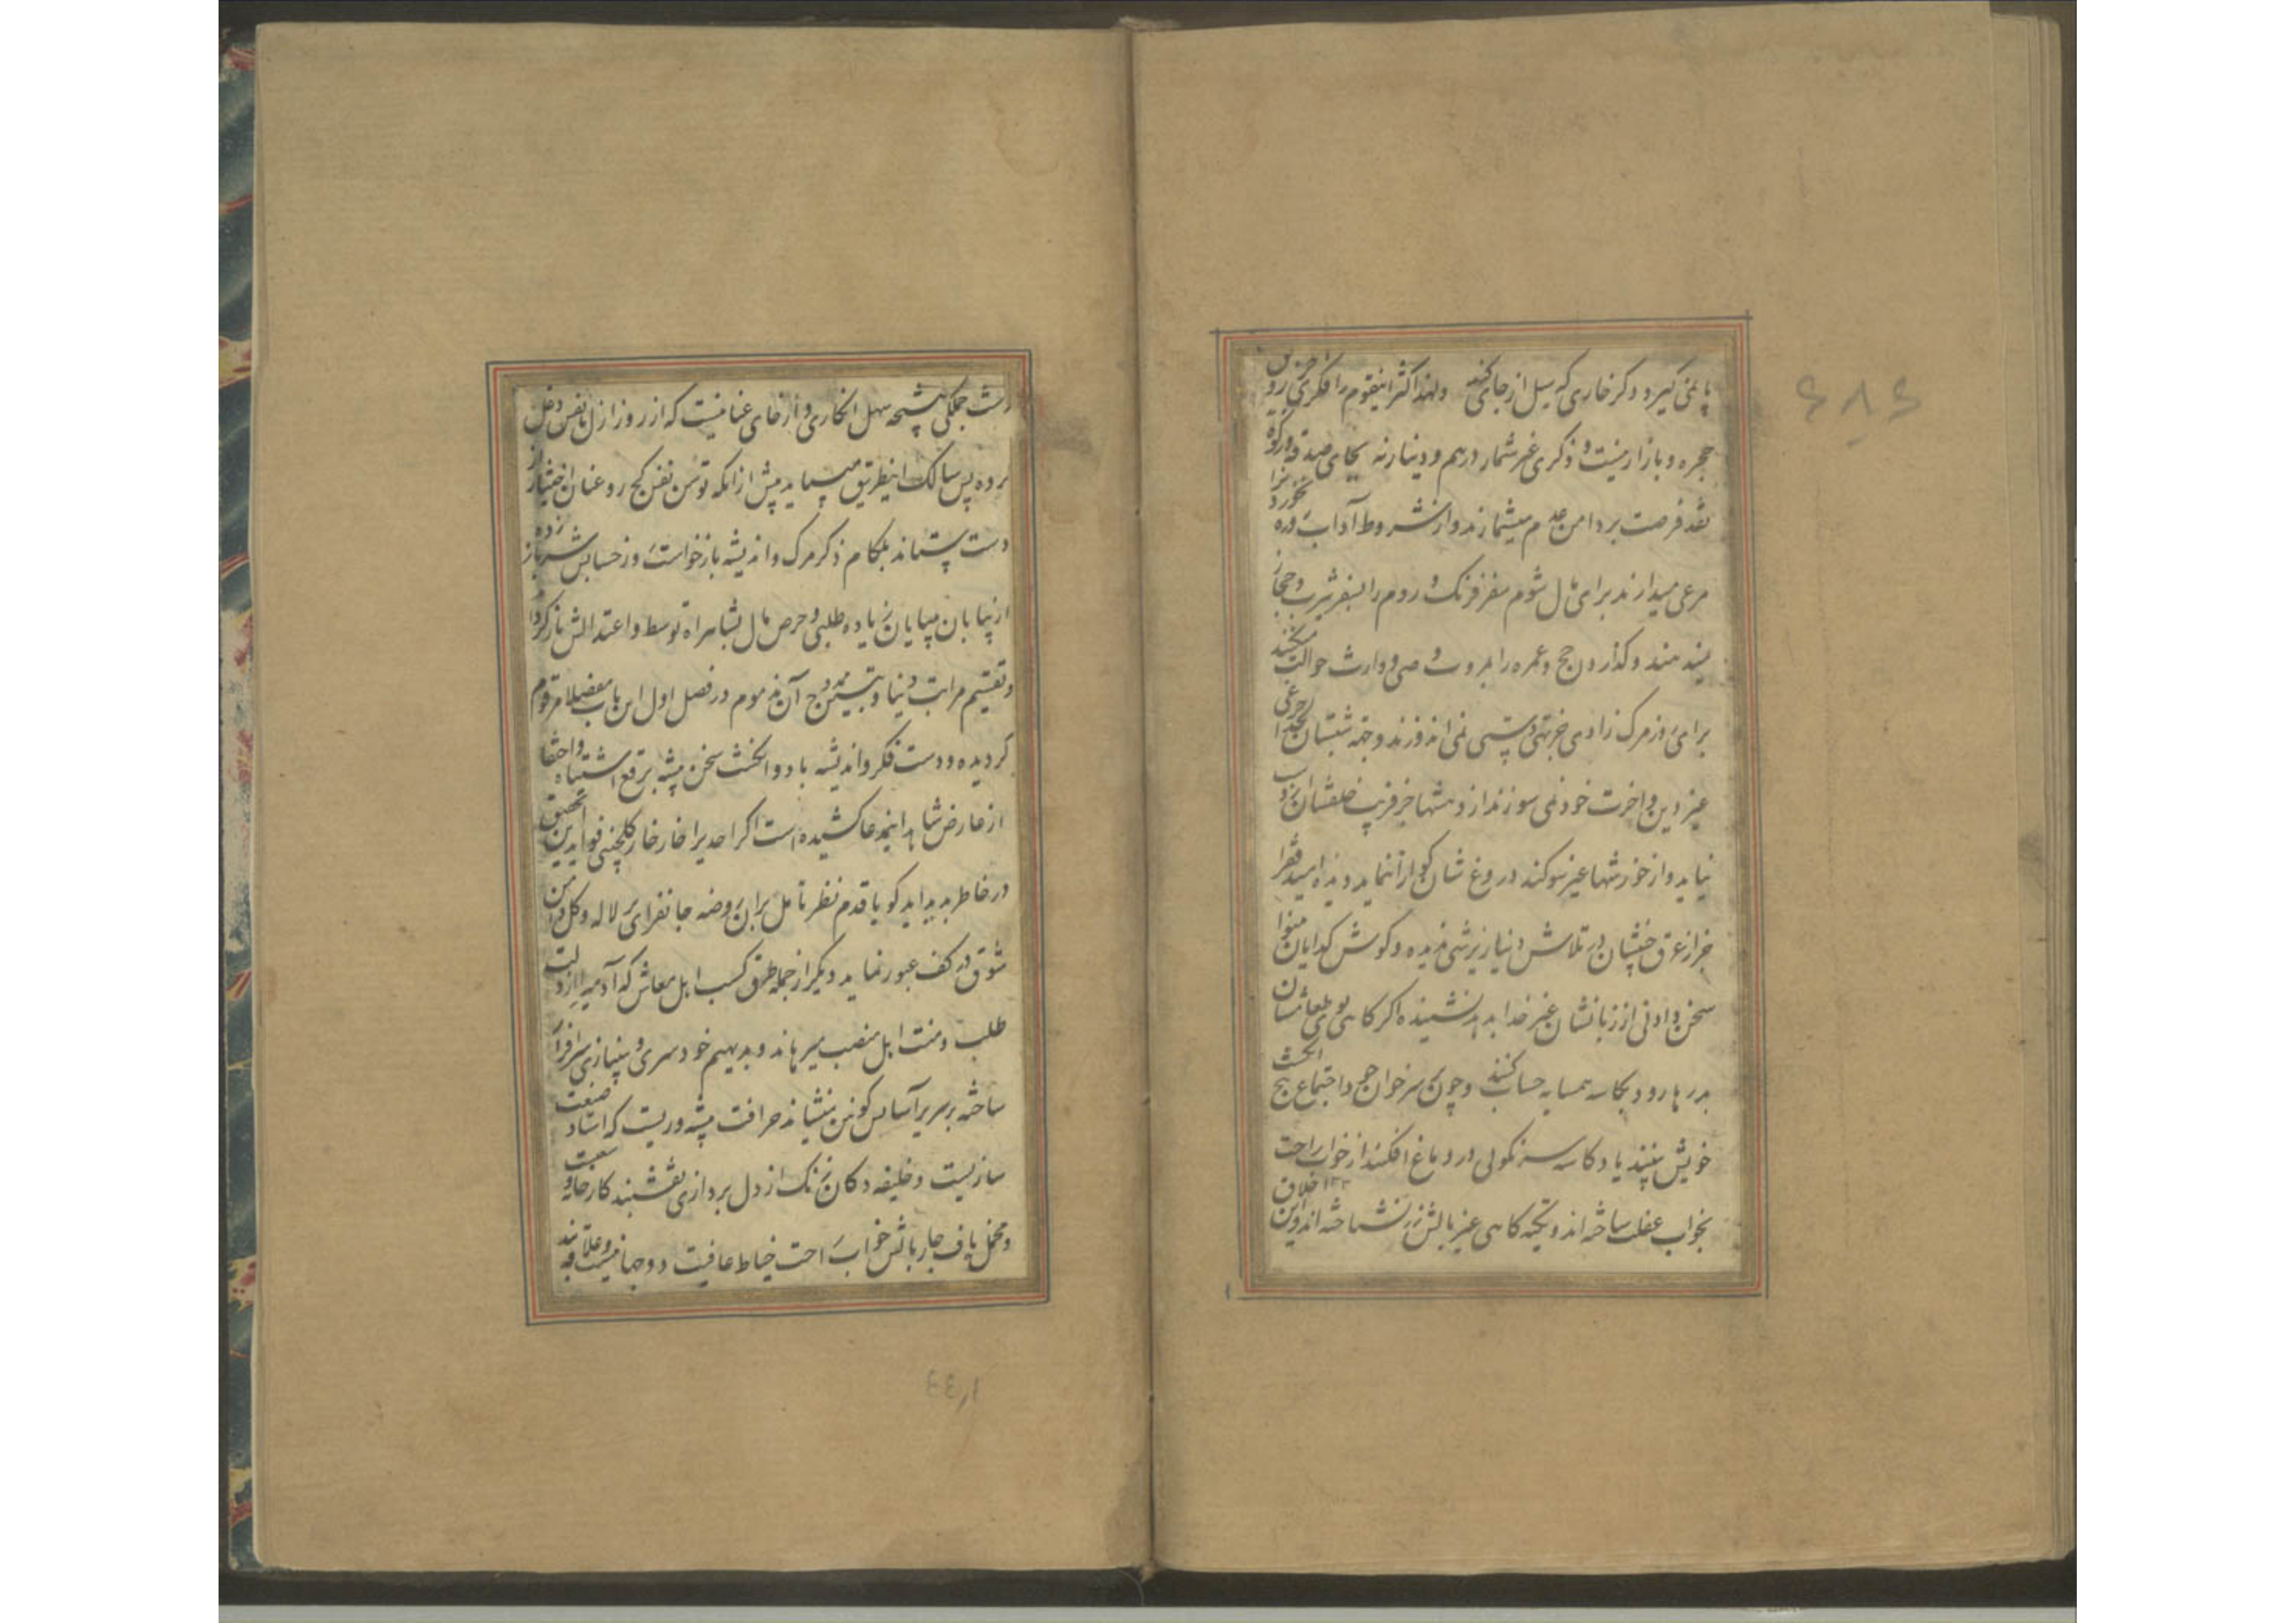 پا نمی گیرد و کر خاری که سیل از جای کند ولهذا اکثر اینقوم را فکری جز
حجره و بازار نیست و ذکری غیر شمار درهم و دینار نه بجای صدقه و زکوة
نقد فرصت بر دامن میشمارند و از شروط آداب
مرعی میدارند برای مال شوم سفر فرنک و روم را بسفر یثرب و حجاز
میدهند و کذاردن حج و عمره را بمروت وصی و وارث حوالت میکنند
برای روز مرک زادی جز تهی دستی نمی اندوزند و جهة شبستان لحد چراغی
غیر دین و اخرت خود نمی سوزند از دهشها جز فریب خلقشان
نیاید و از خورشها غیر سوکند دروغ شان کوارا ننماید و دیده امید فقرا
جز از عرق جبینشان در تلاش دنیا ریزشی ندیده و کوش کدایان بینوا
سخن دادنی از زبانشان غیر خدا بدهد نشنیده اگر کاهی بوی طعامشان
بدر رود بکاسه همسایه حساب کنند و چون بر سر خوان اجتماع پنج انکشت
خویش بینند یاد کاسه سرنکونی در دماغ افکنند از خواب راحت
بخواب غفلت ساخته اند و تکیه کاهی غیر بالش زر نشناخته اند و این اخلاق
زشت جملکی نتیجه سهل انکاری و ارخای عنانیست که از روز ازل با نفس دغل
کرده پس سالک اینطریق میباید پیش از انکه توسن نفس کج رو عنان اختیار از
دست بستاند بلکام ذکر مرک و اندیشه بازخواست روز حسابش سر باز زده
از بیابان بیپایان زیاده طلبی و حرص مال بشاهراه توسط و اعتدالش باز کردا
و تقسیم مراتب دنیا و تبیین ممدوح آن ز مذموم در فصل اول این باب مفصلا مرقوم
کردیده و دست فکر و اندیشه با دو انکشت سخن پیشه برقع اشتباه و اختفا
از عارض شاهد اینمدعا کشیده است اکر احدیرا خار خار کلچینی فواید این تحقیق
در خاطر پدید اید کو با قدم نظر تامل بران روضه جانفزای پر لاله و کل دامن
شوق در کف عبور نماید دیکر از جمله طرق کسب اهل معاش که آدمیرا از ذلت
طلب و منت اهل منصب میرهاند و بدیهیم خودسری و بینیازی سرافراز
ساخته بر سریر آسایش کونین مینشاند حرافت پیشه وریست که استاد صنعت
سازیست و خلیفه دکان زنک از دل پردازی نقشبند کارخانه
و مخمل باف چاربالش خواب راحت خیاط عافیت دو جهانیست و علاقه بند
133